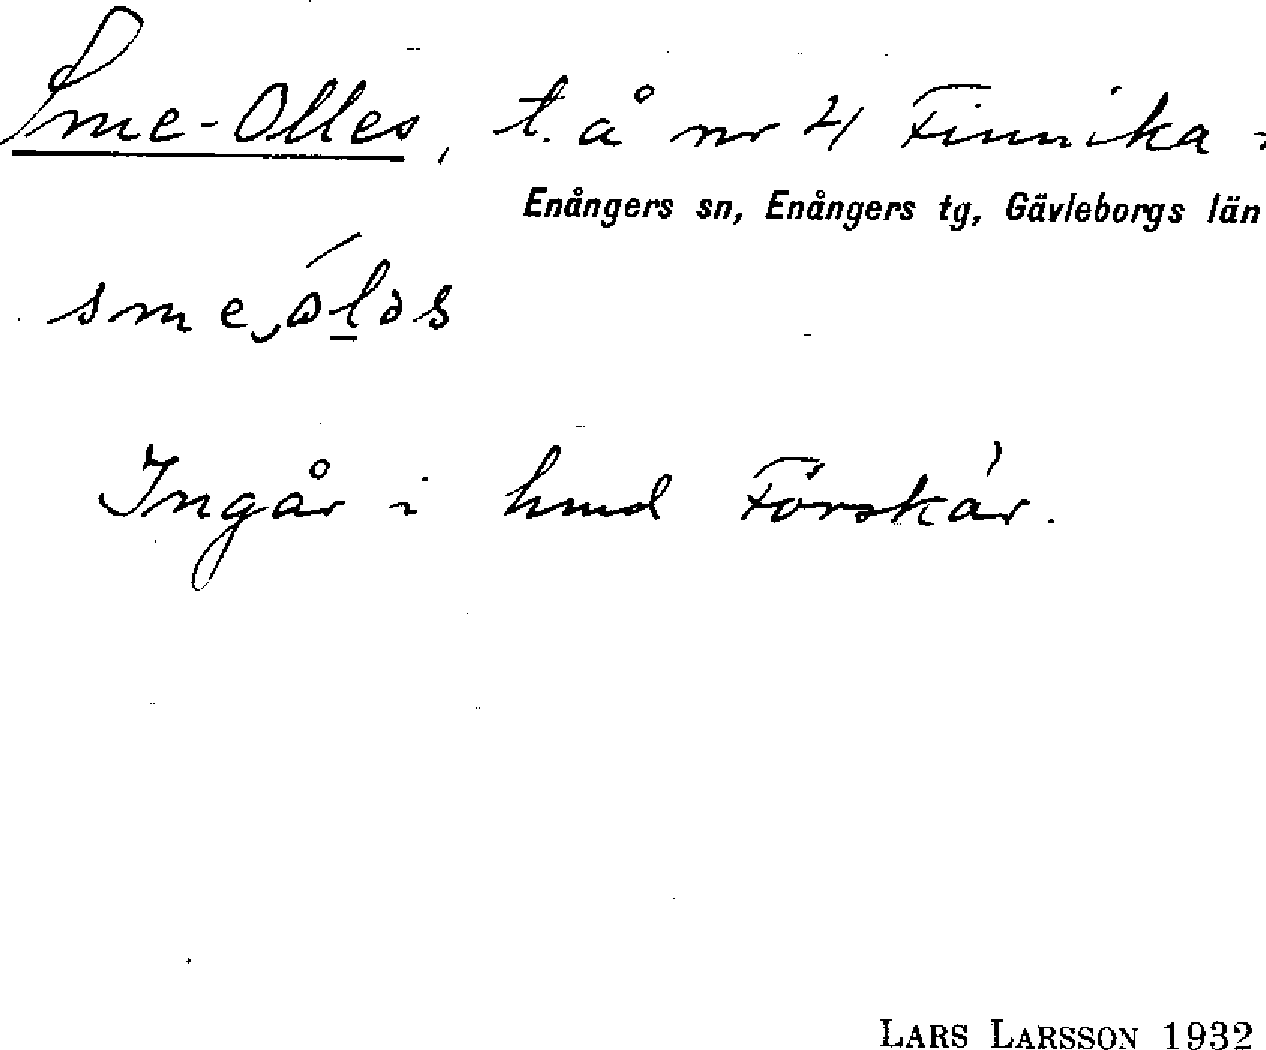 Sme-Olles, t. å nr 4 Finnika i
Enångers sn, Enångers tg, Gävleborgs län
Ingår i hmd Förskär.
LARS LARSSON 1932